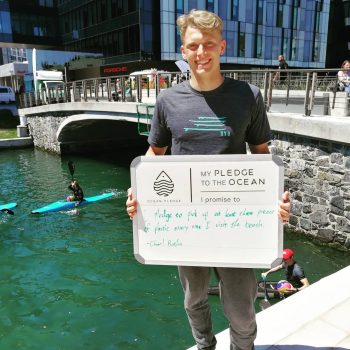 PORSCHE
MY PLEDGE
TO THE OCEAN
OCEAN PLEDGE
I promise to
I pledge to pick up at least three pieces
of plastic every time I visit the beach.